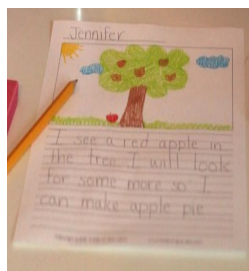 Jennifer
I see a red apple in
the tree. I will look
for some more so I
can make apple pie